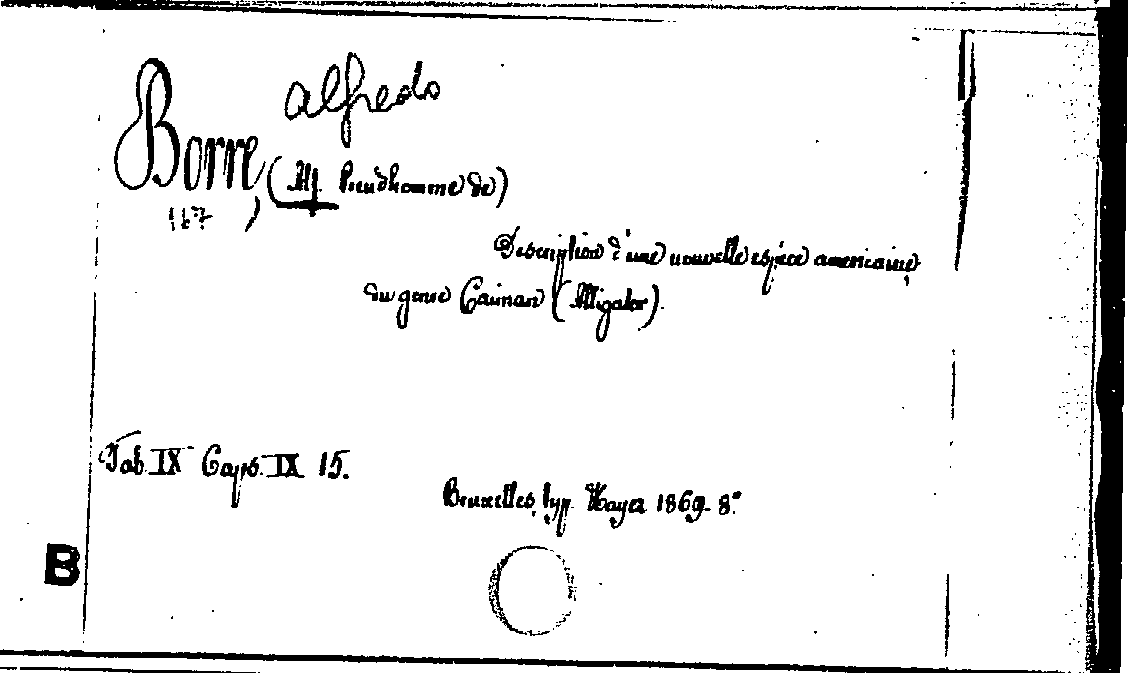 alfredo
Borre, (Af. Prudhomme de)
167
Description d'une nouvelle espèce americaine,
du genre Caiman (Alligator).
Tab. IX Caps. IX 15.
Bruxelles, typ. Hayez 1869. 8°.
B